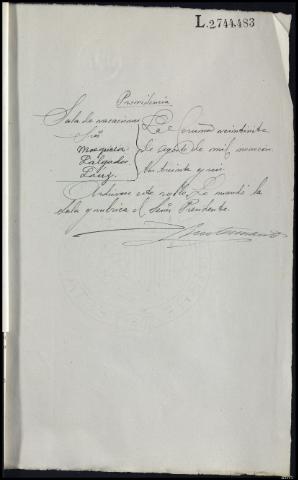 L.2744.483
Providencia
Sala de vacaciones
Señores
Mosquera
Salgado
La Coruña veintisiete
de agosto de mil novecien
tos treinta y seis.
Archívese este rollo. Lo mandó la
Sala y rubrica el Señor Presidente.